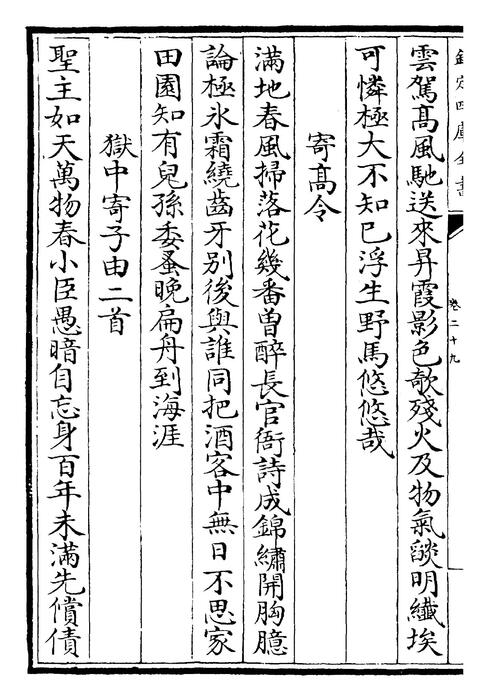 欽定四庫全書
卷二十九
雲駕髙風馳送來昇霞影色欹殘火及物氣燄明纖埃
可憐極大不知已浮生野馬悠悠哉
寄髙令
滿地春風掃落花幾番曽醉長官衙詩成錦繡開胸臆
論極氷霜繞齒牙別後與誰同把酒客中無日不思家
田園知有兒孫委蚤晚扁舟到海涯
獄中寄子由二首
聖主如天萬物春小臣愚暗自忘身百年未滿先償債